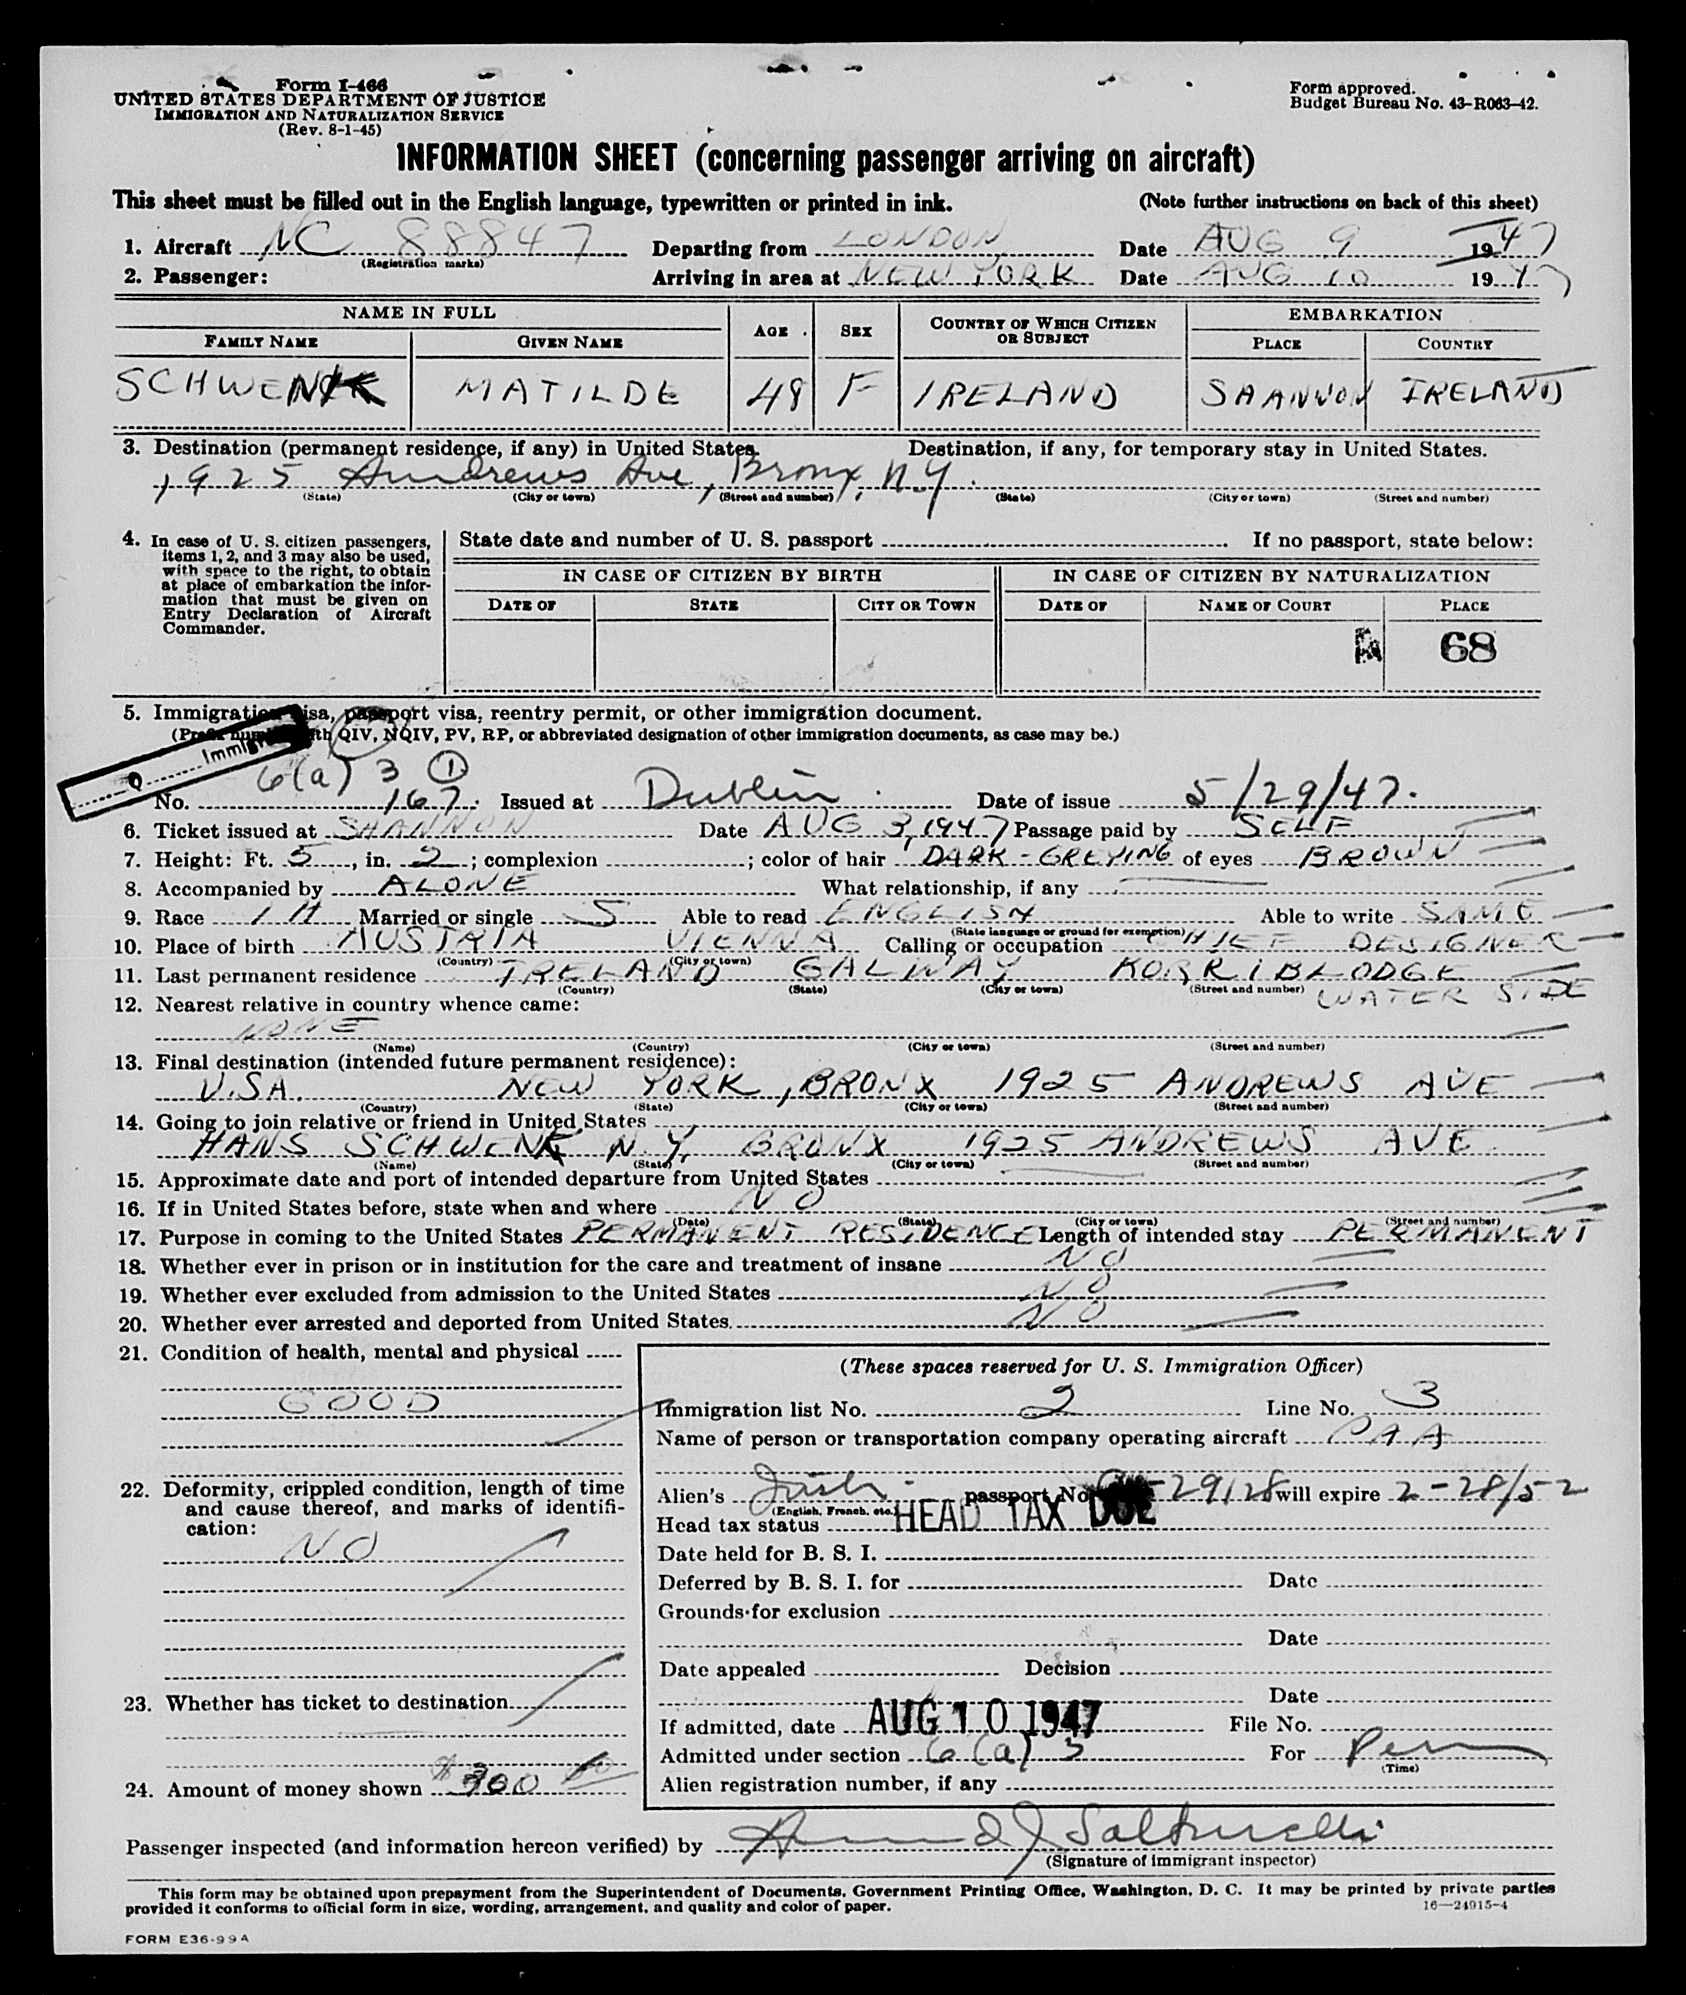 Form I-466
UNITED STATES DEPARTMENT OF JUSTICE
IMMIGRATION AND NATURALIZATION SERVICE
(Rev. 8-1-45)
Form approved.
Budget Bureau No. 43-R063-42.
INFORMATION SHEET (concerning passenger arriving on aircraft)
This sheet must be filled out in the English language, typewritten or printed in ink. (Note further instructions on back of this sheet)
1. Aircraft NC 88847 Departing from LONDON Date AUG 9 1947
(Registration marks)
2. Passenger: Arriving in area at NEW YORK Date AUG 10 1947
NAME IN FULL AGE SEX COUNTRY OF WHICH CITIZEN OR SUBJECT EMBARKATION
FAMILY NAME GIVEN NAME PLACE COUNTRY
SCHWENK MATILDE 48 F IRELAND SHANNON IRELAND
3. Destination (permanent residence, if any) in United States. Destination, if any, for temporary stay in United States.
1925 Andrews Ave, Bronx, N.Y.
(State) (City or town) (Street and number) (State) (City or town) (Street and number)
4. In case of U. S. citizen passengers, items 1, 2, and 3 may also be used, with space to the right, to obtain at place of embarkation the information that must be given on Entry Declaration of Aircraft Commander.
State date and number of U. S. passport If no passport, state below:
IN CASE OF CITIZEN BY BIRTH IN CASE OF CITIZEN BY NATURALIZATION
DATE OF STATE CITY OR TOWN DATE OF NAME OF COURT PLACE
68
5. Immigration visa, passport visa, reentry permit, or other immigration document.
(Prefix number with QIV, NQIV, PV, RP, or abbreviated designation of other immigration documents, as case may be.)
Q
6(a) 3 1
No. 167 Issued at Dublin Date of issue 5/29/47.
6. Ticket issued at SHANNON Date AUG 3, 1947 Passage paid by SELF
7. Height: Ft. 5, in. 2; complexion ; color of hair DARK-GREYING of eyes BROWN
8. Accompanied by ALONE What relationship, if any
9. Race Married or single S Able to read ENGLISH Able to write SAME
(State language or ground for exemption)
10. Place of birth AUSTRIA VIENNA Calling or occupation CHIEF DESIGNER
(Country) (City or town)
11. Last permanent residence IRELAND GALWAY KORRIBLODGE
(Country) (State) (City or town) (Street and number) WATER SIDE
12. Nearest relative in country whence came:
NONE
(Name) (Country) (City or town) (Street and number)
13. Final destination (intended future permanent residence):
U.S.A. NEW YORK, BRONX 1925 ANDREWS AVE
(Country) (State) (City or town) (Street and number)
14. Going to join relative or friend in United States
HANS SCHWENK N.Y. BRONX 1925 ANDREWS AVE
(Name) (State) (City or town) (Street and number)
15. Approximate date and port of intended departure from United States
16. If in United States before, state when and where NO
(Date) (State) (City or town) (Street and number)
17. Purpose in coming to the United States PERMANENT RESIDENCE Length of intended stay PERMANENT
18. Whether ever in prison or in institution for the care and treatment of insane NO
19. Whether ever excluded from admission to the United States NO
20. Whether ever arrested and deported from United States. NO
21. Condition of health, mental and physical
GOOD
22. Deformity, crippled condition, length of time and cause thereof, and marks of identification:
NO
23. Whether has ticket to destination
24. Amount of money shown $300
(These spaces reserved for U. S. Immigration Officer)
Immigration list No. 2 Line No. 3
Name of person or transportation company operating aircraft PAA
Alien's Irish passport No. 29128 will expire 2-28/52
(English, French, etc.)
Head tax status HEAD TAX DUE
Date held for B. S. I.
Deferred by B. S. I. for Date
Grounds for exclusion
Date
Date appealed Decision
Date
If admitted, date AUG 10 1947 File No.
Admitted under section 6(a) 3 For Perm
(Time)
Alien registration number, if any
Passenger inspected (and information hereon verified) by
(Signature of immigrant inspector)
This form may be obtained upon prepayment from the Superintendent of Documents, Government Printing Office, Washington, D. C. It may be printed by private parties
provided it conforms to official form in size, wording, arrangement, and quality and color of paper. 16—24915-4
FORM E36-99A